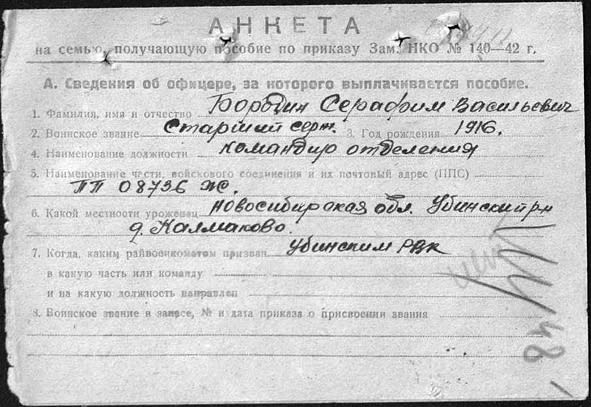 АНКЕТА
на семью, получающую пособие по приказу Зам. НКО № 140—42 г.
А. Сведения об офицере, за которого выплачивается пособие.
1. Фамилия, имя и отчество Бородин Серафим Васильевич
2. Воинское звание Старший серж. 3. Год рождения 1916.
4. Наименование должности командир отделения
5. Наименование части, войскового соединения и их почтовый адрес (ППС)
ПП 08736 Ж.
6. Какой местности уроженец Новосибирская обл. Убинский р-н
д. Калмаково.
7. Когда, каким райвоенкоматом призван Убинским РВК
в какую часть или команду
и на какую должность направлен
8. Воинское звание в запасе, № и дата приказа о присвоении звания